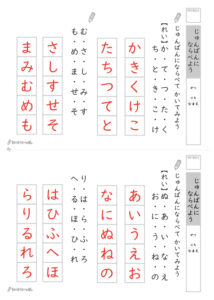 じゅんばんに
ならべよう
じゅんばんにならべてかいてみよう
【れい】か・て・つ・た・く
ち・と・き・こ・け
かきくけこ
たちつてと
む・さ・し・み・す
も・め・ま・せ・そ
さしすせそ
まみむめも
じゅんばんに
ならべよう
じゅんばんにならべてかいてみよう
【れい】ぬ・あ・い・な・え
お・に・う・ね・の
あいうえお
なにぬねの
り・は・ら・ふ・ろ
はひふへほ
らりるれろ